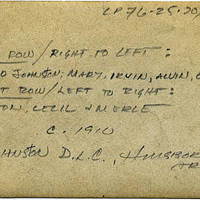 LP76-25-20
ROW/RIGHT TO LEFT:
JOHNSTON, MARY, IRVIN, ALVIN,
ROW/LEFT TO RIGHT:
TON, CECIL & MERLE
C. 1910
HNSTON D.L.C.,